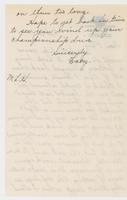 on them too long.
Hope to get back in time
to see you wind up your
championship drive.
Sincerely
Gaby.
M.L.H.